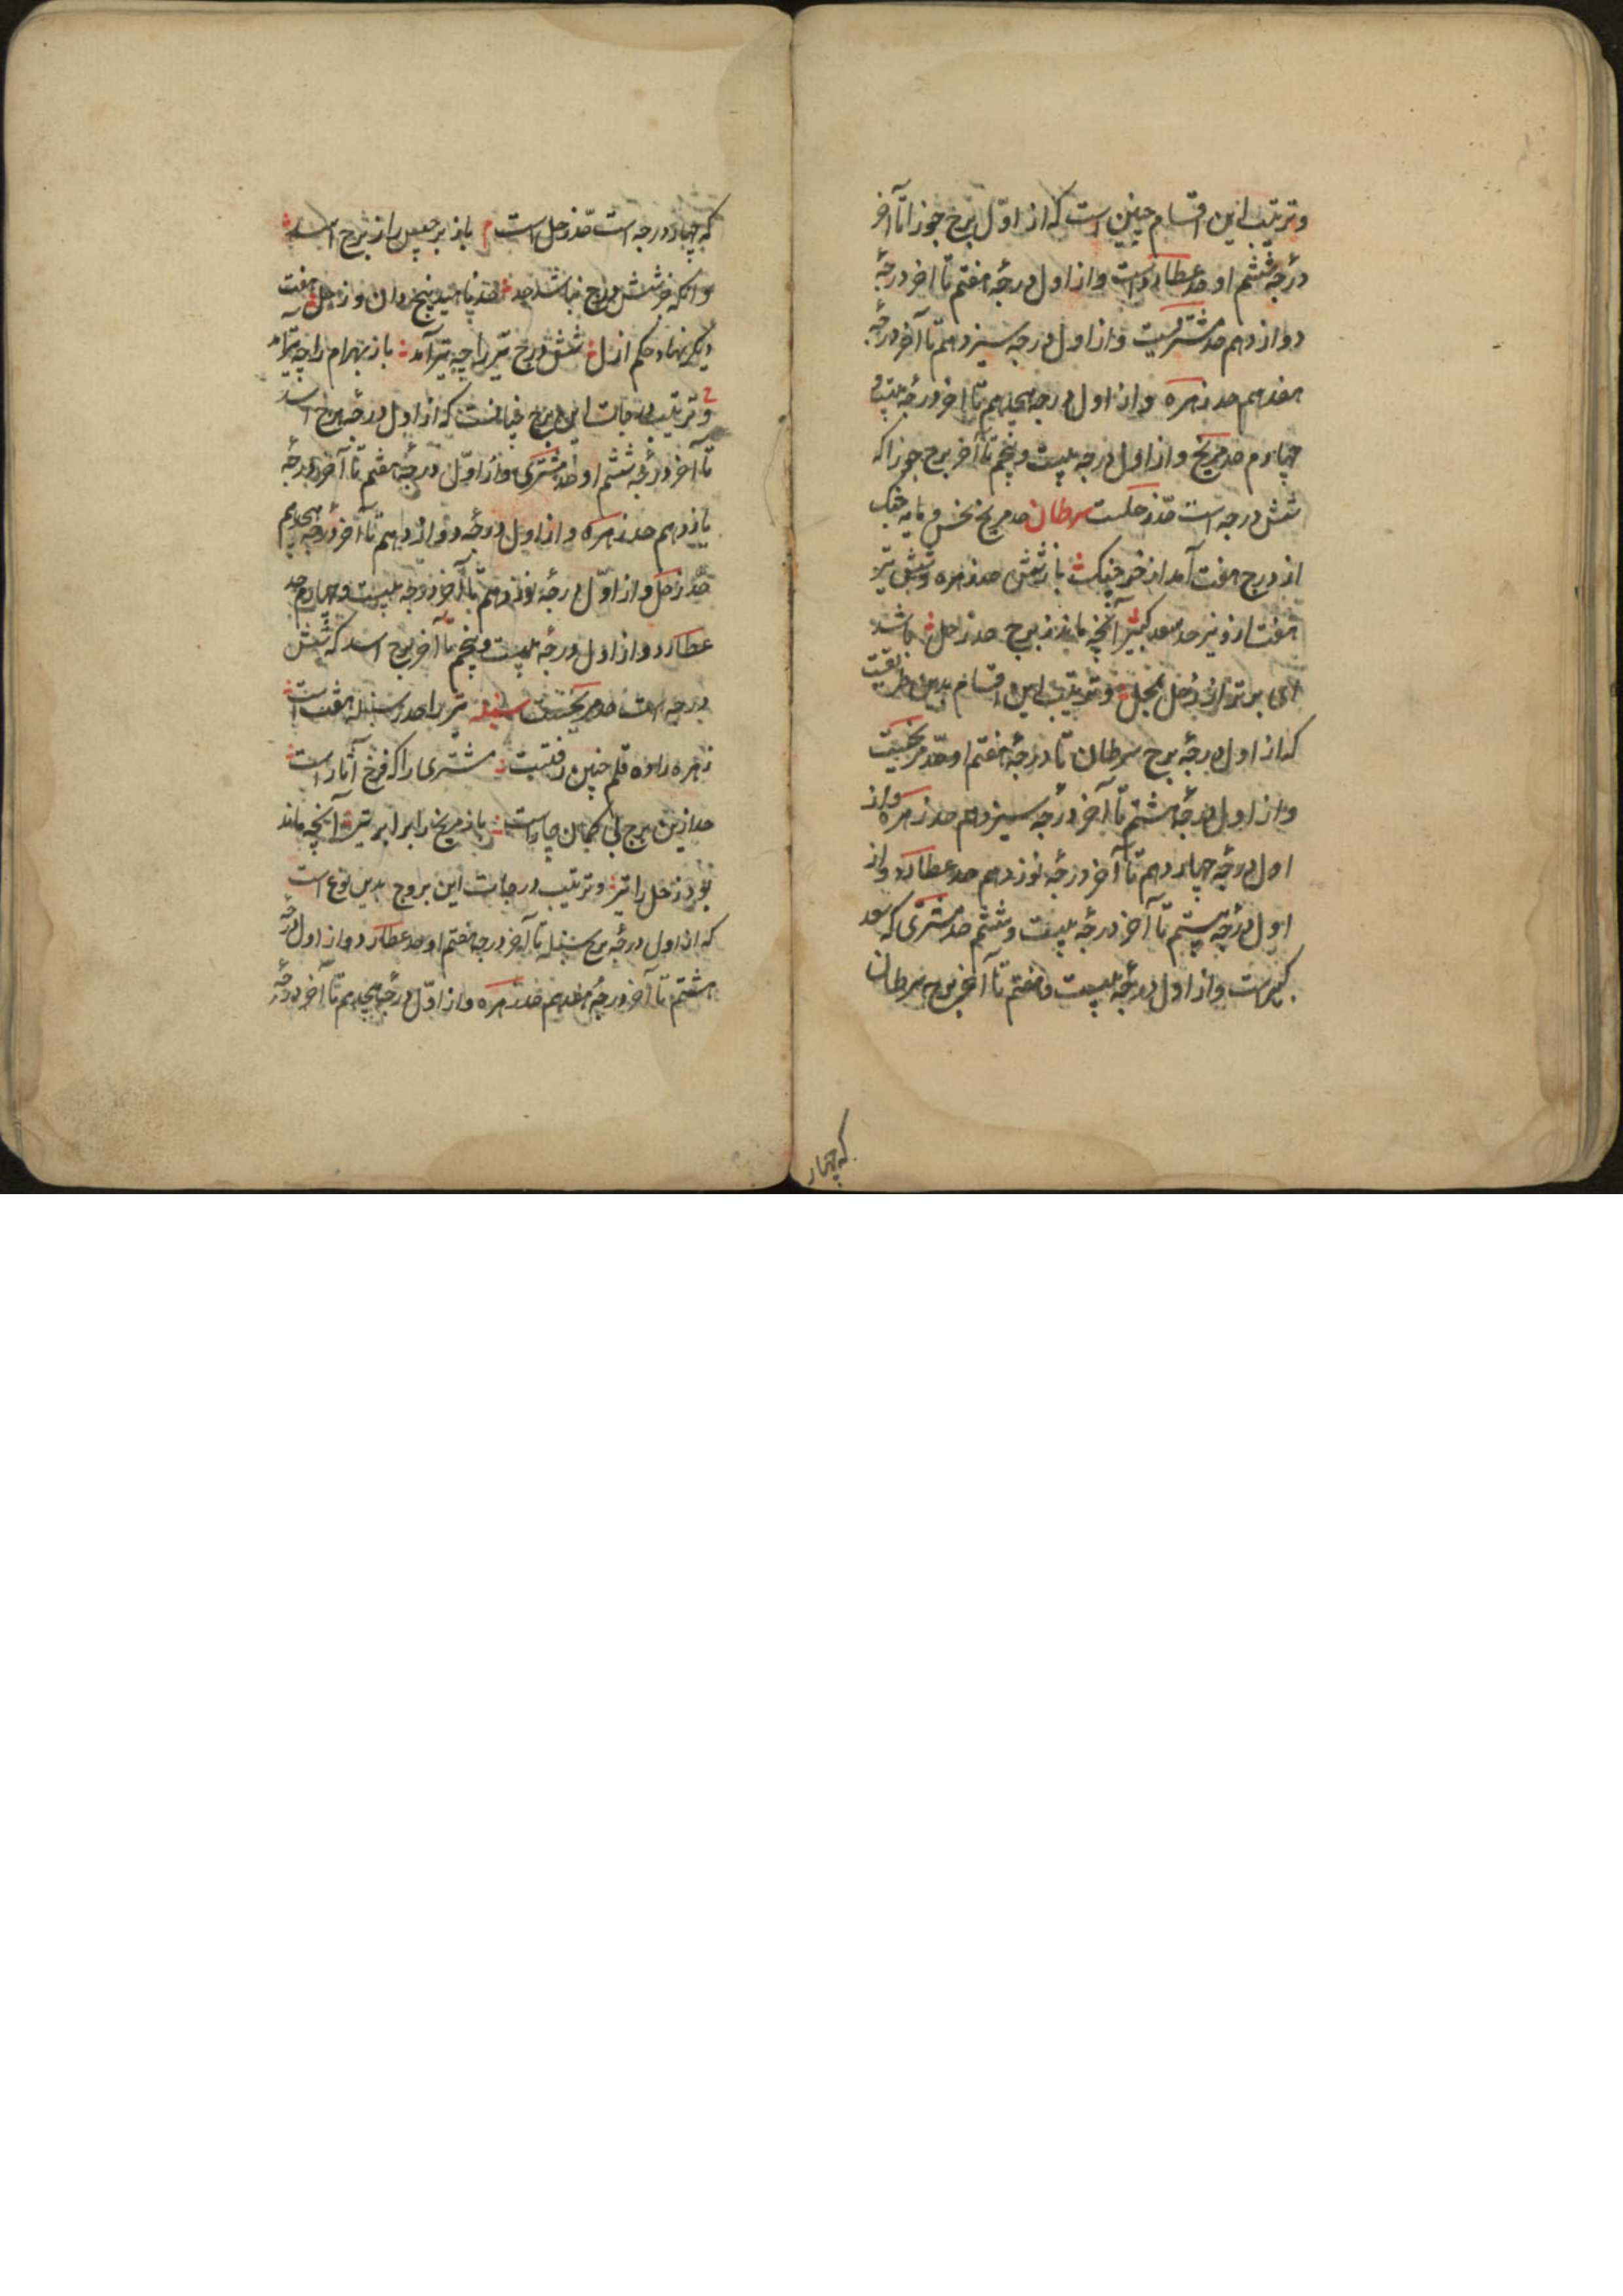 وترتیب این اقسام چنین است که از اوّل برج جوزا تا آخر
درجهٔ ششم او حد عطاردست و از اول درجهٔ هفتم تا آخر درجهٔ
دوازدهم حد مشتریست و از اول درجه سیزدهم تا آخر درجهٔ
هفدهم حد زهره و از اول درجه هجدهم تا آخر درجهٔ بیست و
چهارم حد مریخ و از اول درجه بیست و پنجم تا آخر برج جوزا که
شش درجه است حدّ زحلست سرطان حد مریخ نحس و مایه جنک
از درج هفت آمد از خرچنک باز شش حد زهره و شش تیر
هفت ازو نیز حد سعد کبیر آنچه ماند ز برج حد زحل باشد
ای برتر از زحل بمحل وترتیب این اقسام بدین طریقست
که از اول درجهٔ برج سرطان تا درجهٔ هفتم او حدّ مریخست
و از اول درجهٔ هشتم تا آخر درجه سیزدهم حد زهره و از
اول درجه چهاردهم تا آخر درجهٔ نوزدهم حد عطارد و از
اول درجه بیستم تا آخر درجهٔ بیست و ششم حد مشتری که سعد
کبیرست و از اول درجهٔ بیست و هفتم تا آخر برج سرطان
که چهار
که چهار درجه است حدّ زحل است باز برجیس را ز برج اسد
وانکه جز شش درج نباشد حد حد ناهید پنج دان وز حل هفت
دیکر نهاد حکم ازل شش درج تیر را چه تیز آمد باز بهرام را چه تیر آمد
وترتیب درجات این برج چنانست که از اول درجهٔ برج اسد
تا آخر درجهٔ ششم او حد مشتری و از اوّل درجهٔ هفتم تا آخر درجهٔ
یازدهم حد زهره و از اول درجهٔ دوازدهم تا آخر درجه هجدهم
حدّ زحل و از اوّل درجهٔ نوزدهم تا آخر درجه بیست و چهارم حد
عطارد و از اول درجهٔ بیست و پنجم تا آخر برج اسد که شش
درجه است حد مریخست سنبله تیر را حد ز سنبله هفت است
زهره را ده قلم چنین رفتست مشتری را که فرخ آثار است
حد ازین برج بی کمان چار است باز مریخ را برابر تیر آنچه ماند
بود زحل را تیر وترتیب درجات این بروج بدین نوع است
که از اول درجهٔ برج سنبله تا آخر درجه هفتم او حد عطارد و از اول درجهٔ
هشتم تا آخر درجهٔ هفدهم حد زهره و از اوّل درجهٔ هجدهم تا آخر درجهٔ